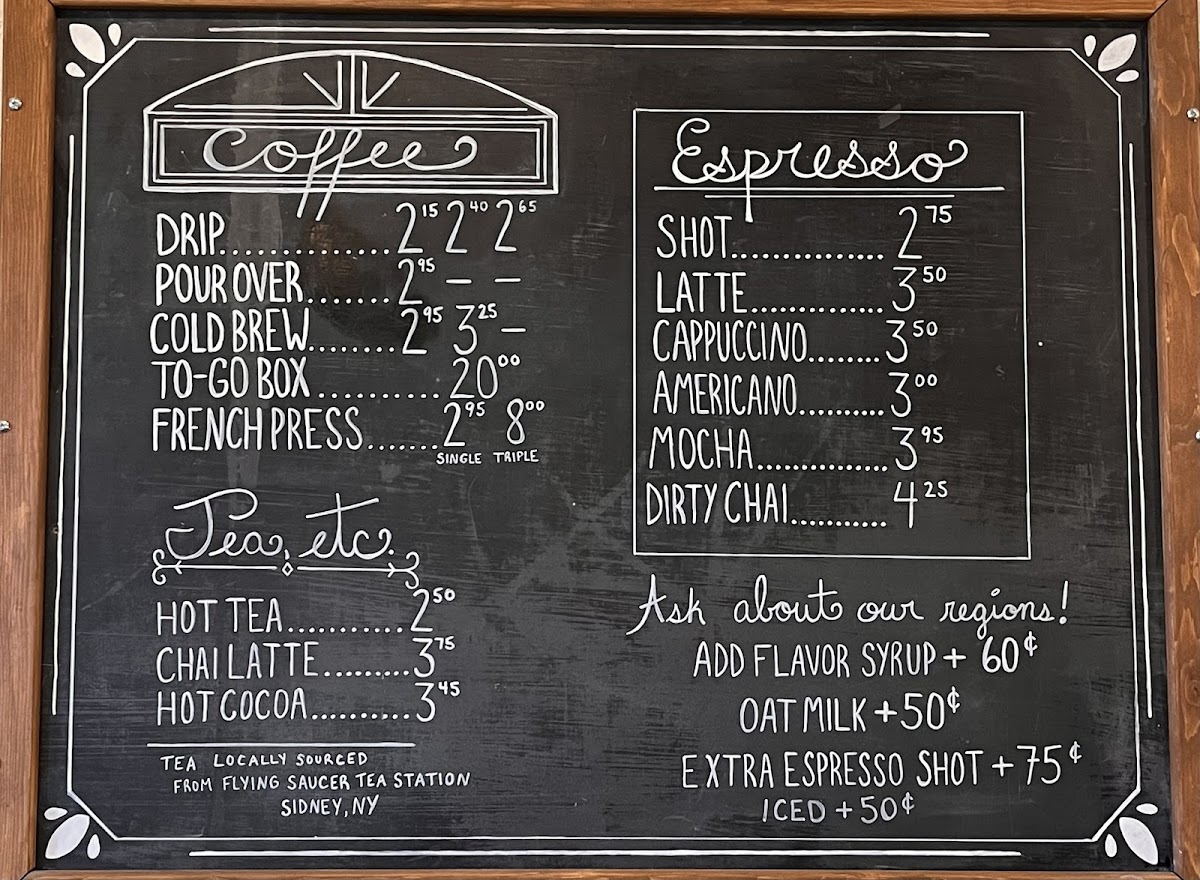 Coffee
DRIP.............. 2¹⁵ 2⁴⁰ 2⁶⁵
POUR OVER....... 2⁹⁵ – –
COLD BREW........ 2⁹⁵ 3²⁵ –
TO-GO BOX .......... 20⁰⁰
FRENCH PRESS....... 2⁹⁵ 8⁰⁰
SINGLE TRIPLE
Tea, etc.
HOT TEA........... 2⁵⁰
CHAI LATTE........ 3⁷⁵
HOT COCOA.......... 3⁴⁵
TEA LOCALLY SOURCED
FROM FLYING SAUCER TEA STATION
SIDNEY, NY
Espresso
SHOT............... 2⁷⁵
LATTE............. 3⁵⁰
CAPPUCCINO........ 3⁵⁰
AMERICANO.......... 3⁰⁰
MOCHA.............. 3⁹⁵
DIRTY CHAI.......... 4²⁵
Ask about our regions!
ADD FLAVOR SYRUP + 60¢
OAT MILK +50¢
EXTRA ESPRESSO SHOT +75¢
ICED +50¢